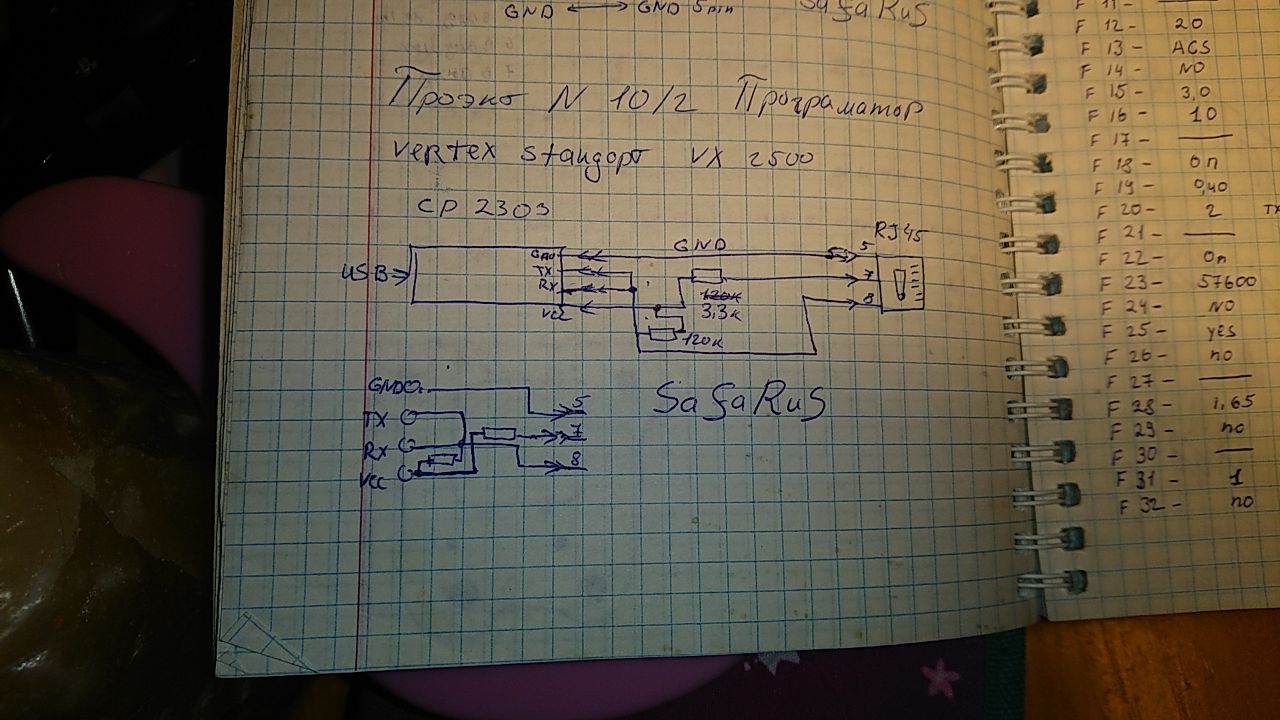 GND ⟷ GND 5pin SaFaRuS
Проэкт N 10/2 Програматор
vertex standart VX 2500
CP 2303
RJ45
USB
GND
TX
RX
VCC
GND
5
7
8
120к
3,3к
120к
GND
TX
RX
VCC
5
7
8
SaFaRuS
F 11 - —
F 12 - 20
F 13 - ACS
F 14 - NO
F 15 - 3,0
F 16 - 10
F 17 - —
F 18 - on
F 19 - 0,40
F 20 - 2 TX
F 21 - —
F 22 - On
F 23 - 57600
F 24 - NO
F 25 - yes
F 26 - no
F 27 - —
F 28 - 1,65
F 29 - no
F 30 - —
F 31 - 1
F 32 - no